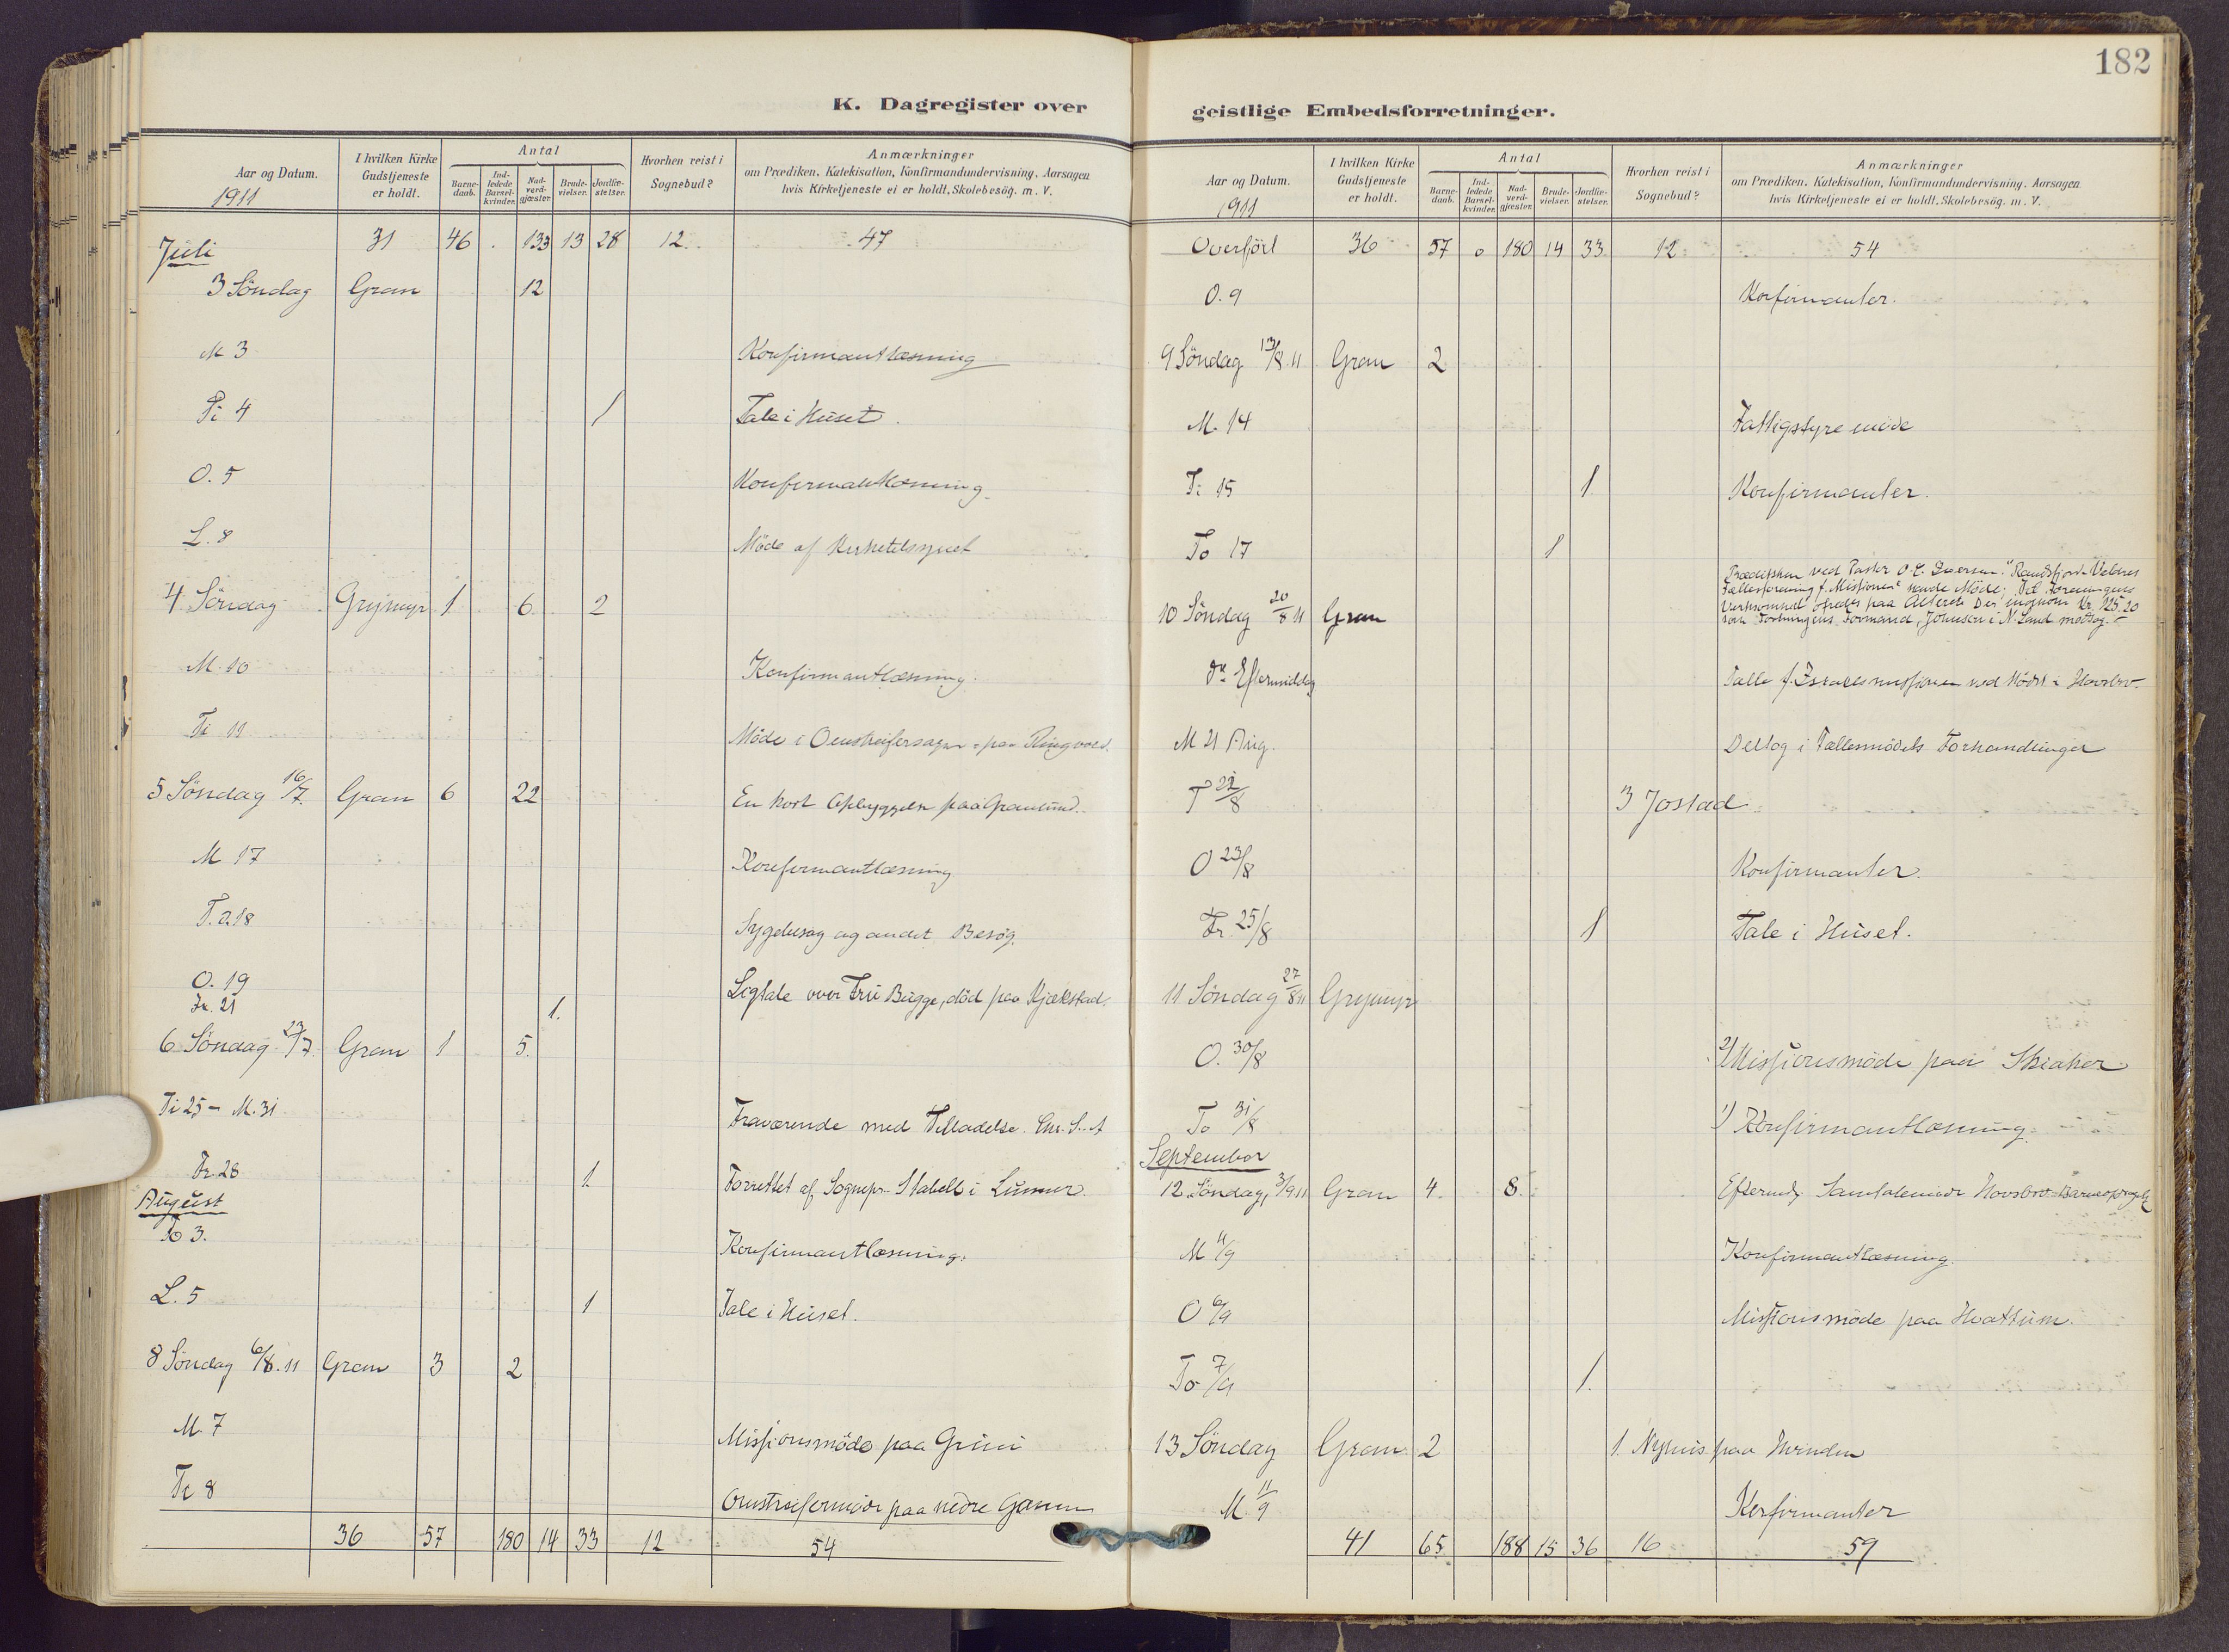 182
K. Dagregister over geistlige Embedsforretninger.
Aar og Datum. 1911 | I hvilken Kirke Gudstjeneste er holdt. | Antal | Barne-daab. | Ind-ledede Barsel-kvinder. | Nad-verd-gjæster. | Brude-vielser. | Jordfæ-stelser. | Hvorhen reist i Sognebud? | Anmærkninger om Prædiken, Katekisation, Konfirmandundervisning, Aarsagen hvis Kirketjeneste ei er holdt, Skolebesøg. m. V.
Juli 31 46 . 133 13 28 12 47
3 Söndag Gran 12
M 3 Konfirmantlæsning
Ti 4 1 Tale i Huset.
O. 5 Konfirmantlæsning.
L. 8 Möde af Kirketilsynet
4 Söndag Grymyr 1 6 2
M. 10 Konfirmantlæsning.
Ti 11 Möde i Omstreifersagen paa Ringvold.
5 Söndag 16/7 Gran 6 22 En kort Opbyggelse paa Granlund.
M 17 Konfirmantlæsning
T. 18 Sygebesøg og andet Besøg.
O. 19 Ligtale over Fru Bugge, død paa Kjækstad.
Fr. 21 1.
6 Söndag 23/7 Gran 1 5.
Ti 25 - M. 31 Fraværende med Tilladelse.
Fr. 28 1 Forrettet af Sognepr. Stabell i Lunner.
August
To 3. Konfirmantlæsning.
L. 5 1 Tale i Huset.
8 Söndag 6/8.11 Gran 3 2
M. 7 Missionsmöde paa Grini
Ti 8 Omstreifermöde paa nedre Gamme
36 57 180 14 33 12 54
Aar og Datum. 1911 | I hvilken Kirke Gudstjeneste er holdt. | Antal | Barne-daab. | Ind-ledede Barsel-kvinder. | Nad-verd-gjæster. | Brude-vielser. | Jordfæ-stelser. | Hvorhen reist i Sognebud? | Anmærkninger om Prædiken, Katekisation, Konfirmandundervisning, Aarsagen hvis Kirketjeneste ei er holdt, Skolebesøg. m. V.
Overført 36 57 0 180 14 33 12 54
O. 9 Konfirmanter.
9 Söndag 13/8 11 Gran 2
M. 14 Fattigstyremöde
Ti 15 1 Konfirmanter.
To 17 1
Prædiken ved Pastor O. E. "Randsfjord-Valdres
Fællesforening f. Missionen" havde Möde; Til Foreningens
Virksomhed ofredes paa Alteret Kr. 125.20
som Foreningens Formand, Johnsen i N. Land modtog.
10 Söndag 20/8 11 Gran
Eftermiddag Talte f. Israelsmissionen ved Mödet i Hovsbro.
M 21 Aug. Deltog i Fællesmödets Forhandlinger
T 22/8 3 Jostad
O 23/8 Konfirmanter.
Fr. 25/8 1 Tale i Huset.
11 Söndag 27/8 11 Grymyr
O. 30/8 2) Missionsmöde paa Skiaker
To 31/8 1) Konfirmantlæsning.
September
12 Söndag, 3/9 11 Gran 4 8 Eftermdg. Samtalemöde Hovsbro.
M 4/9 Konfirmantlæsning.
O 6/9 Missionsmöde paa Hvattum.
To 7/9 1.
13 Söndag Gran 2 1. Nyhus paa Hvinden
M. 11/9 Konfirmanter
41 65 188 15 36 16 59